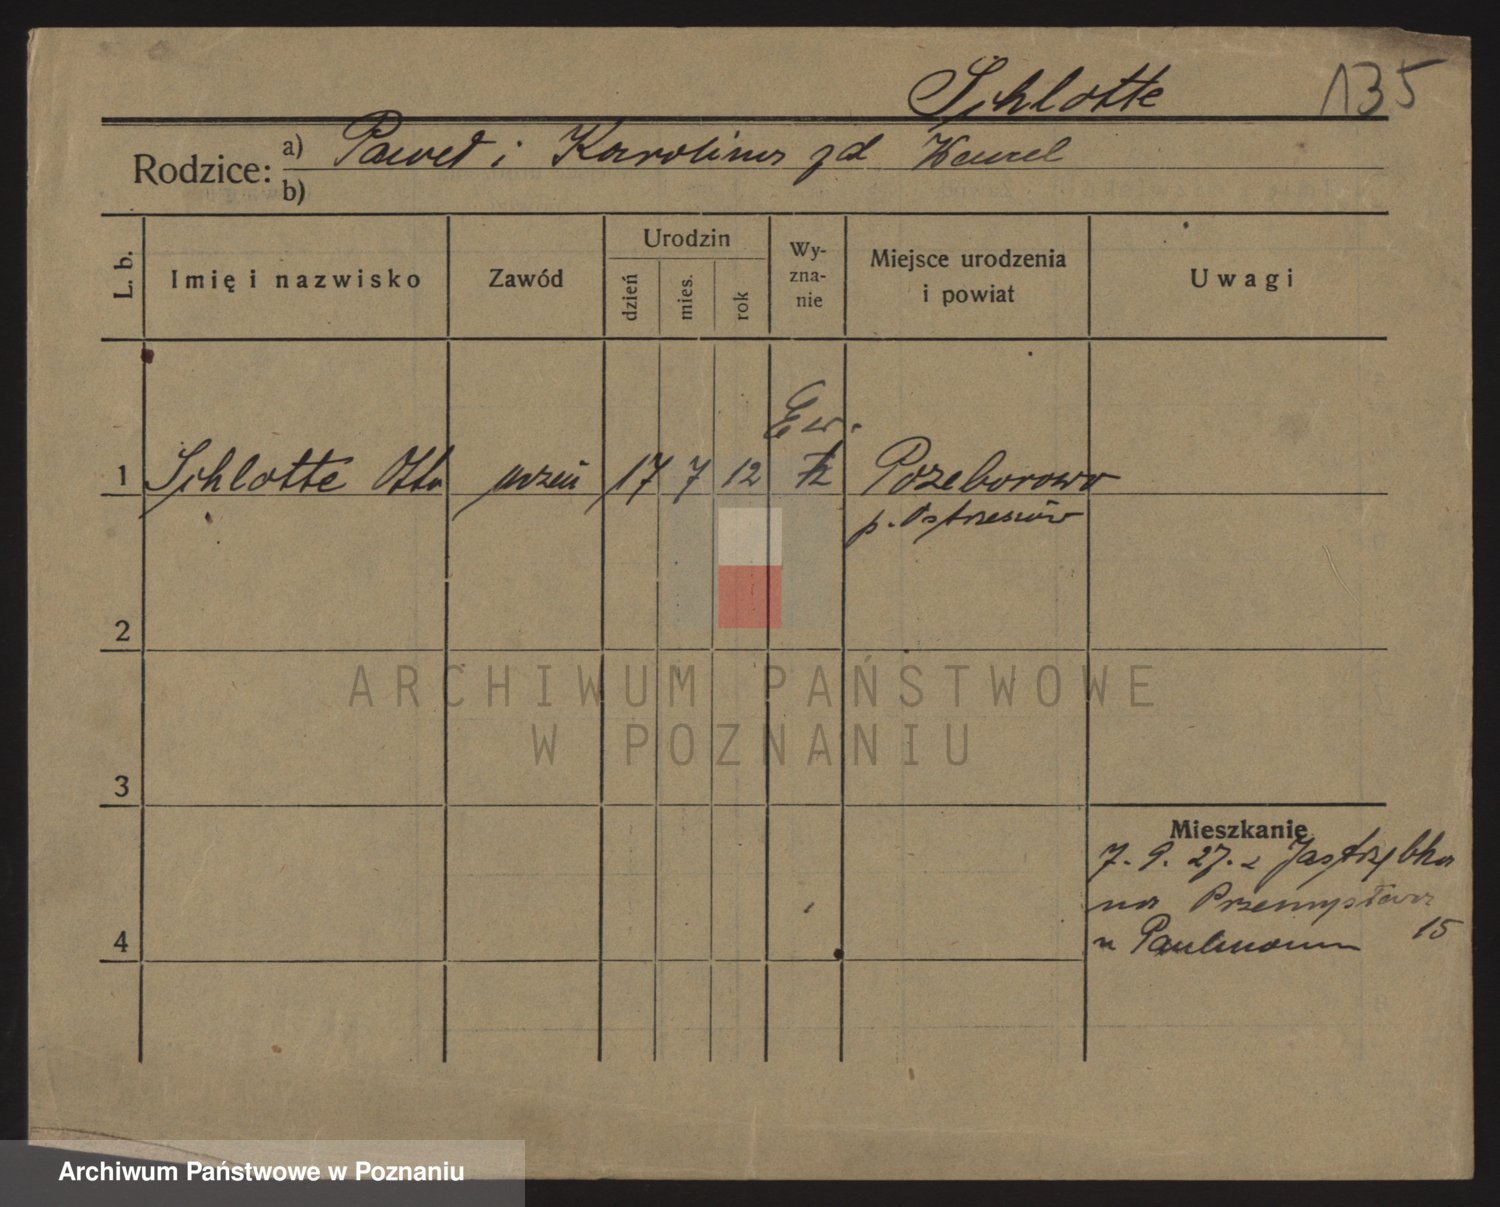 Schlotte 135
Rodzice: a) Paweł i Karolina zd
b)
L. b. Imię i nazwisko Zawód Urodzin dzień mies. rok Wy-zna-nie Miejsce urodzenia i powiat Uwagi
Ew.
1 Schlotte Otto uczeń 17 7 12
p. Ostrzeszów
2
ARCHIWUM PAŃSTWOWE
W POZNANIU
3
Mieszkanie
7. 9. 27. z Jastrzębka
na Przemysława
4 u Paulmann 15
Archiwum Państwowe w Poznaniu